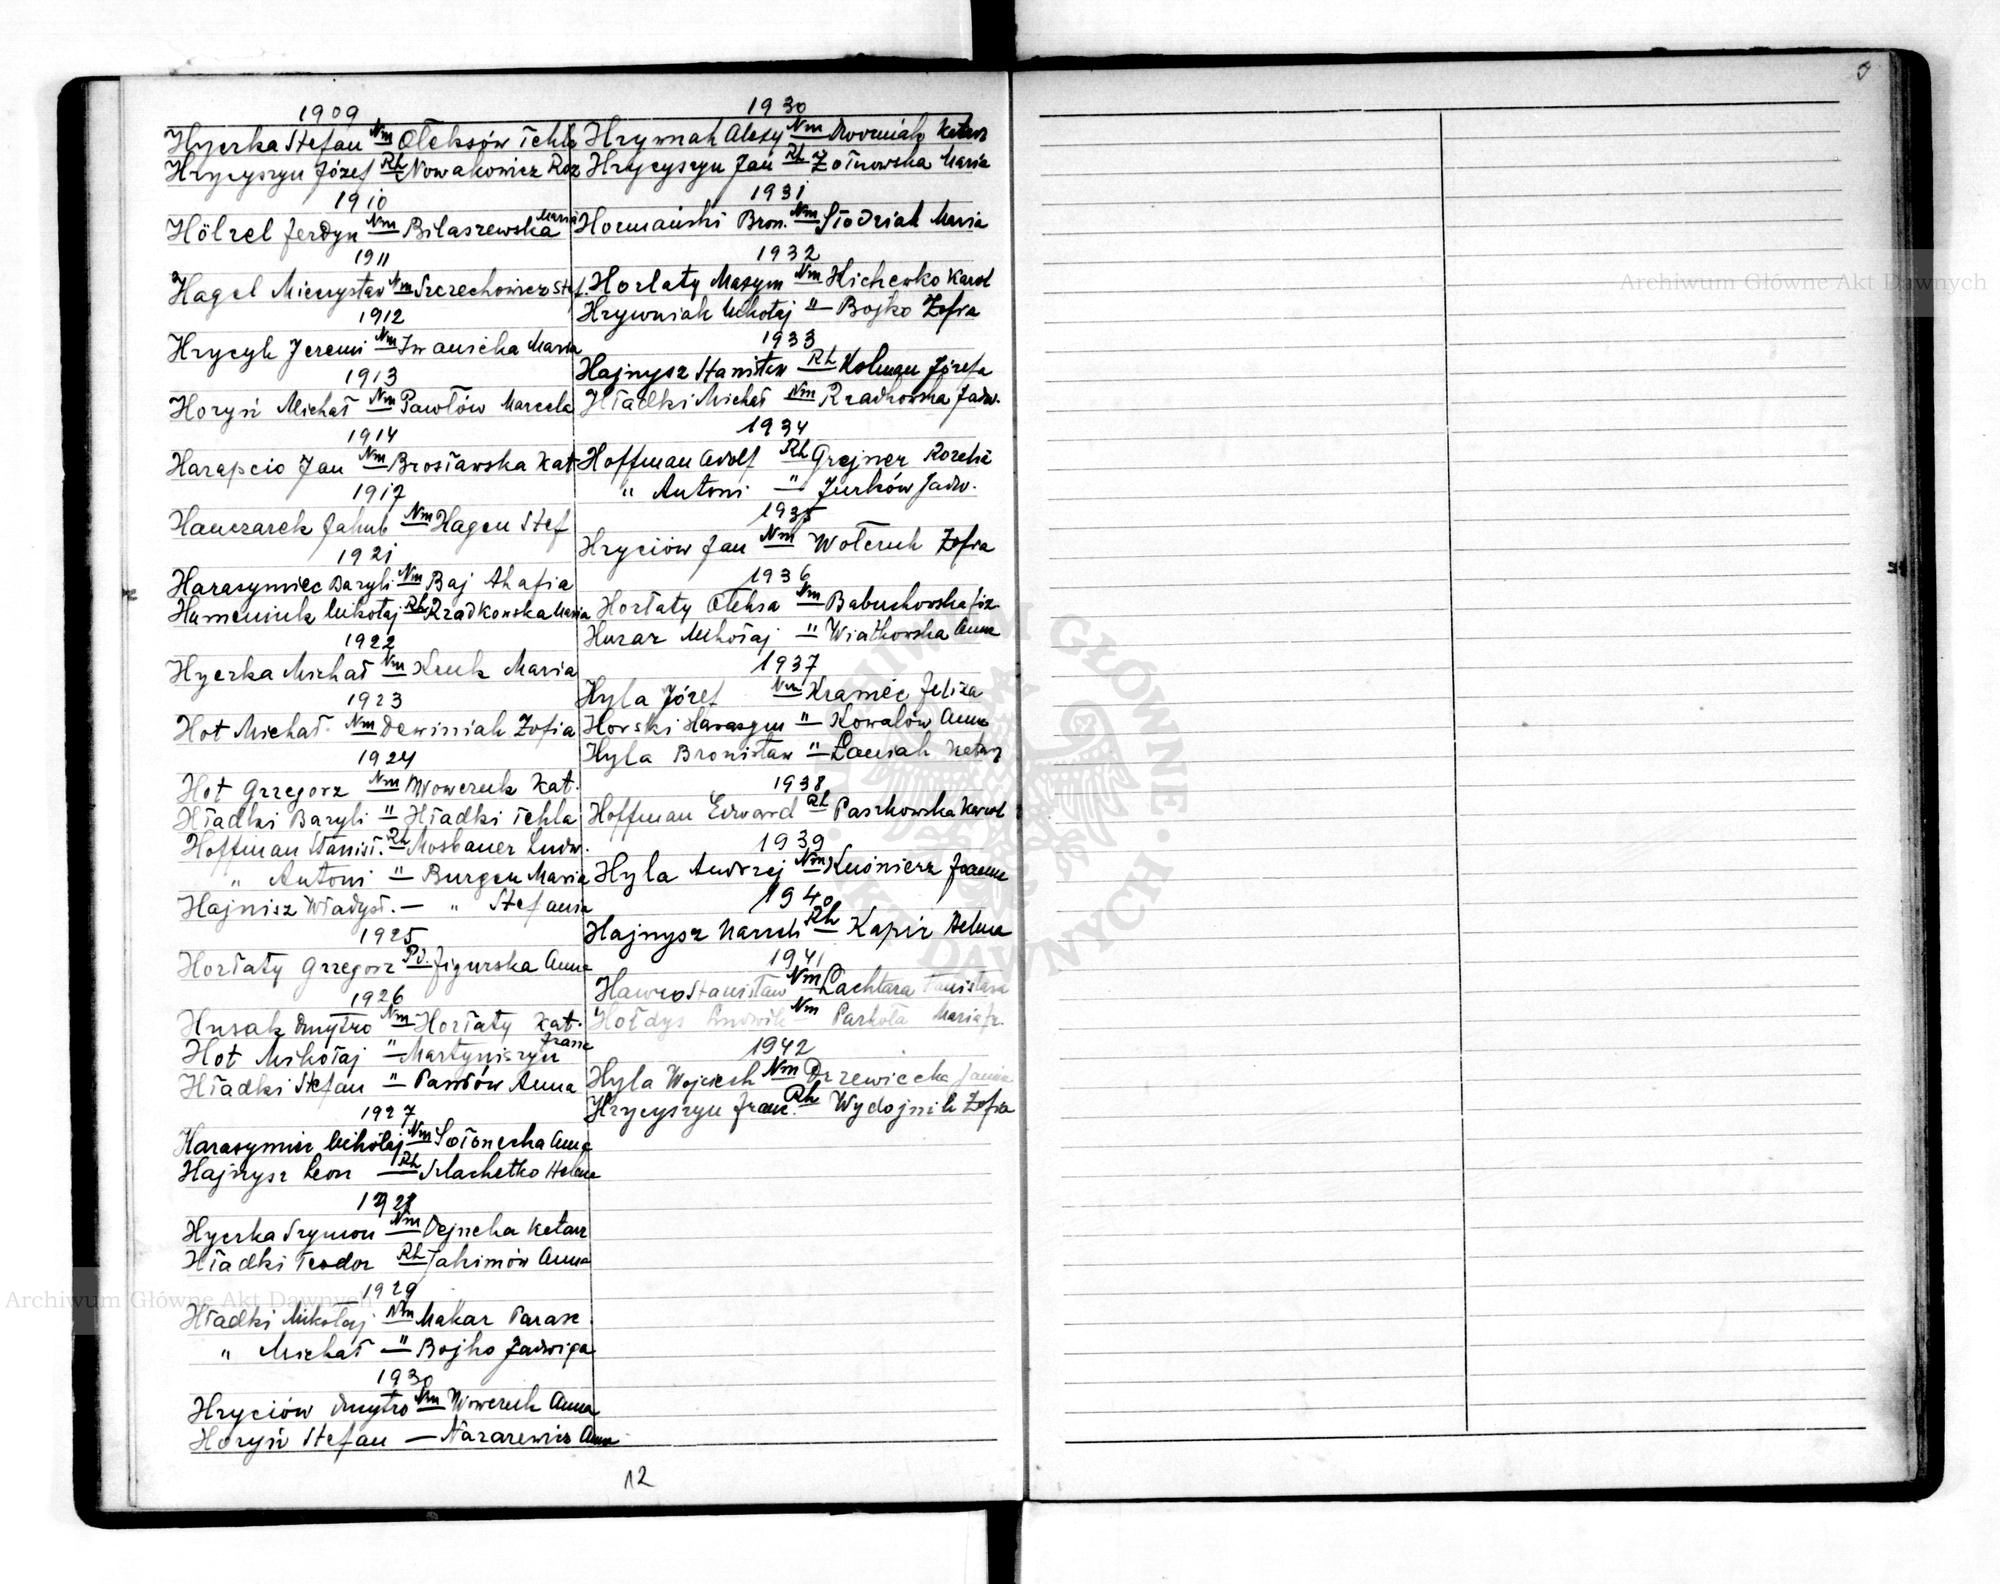 1909
Hycrka Stefan Nm Oleksów Tekla
Hrycyszyn Józef Rh Nowakowicz Roz
1910
Hölzel Ferdyn Nm Bilaszewska Maria
1911
Hagel Mieczysław Nm Szczechowicz Stef.
1912
Hrycyk Jeremi Nm Iwanicha Maria
1913
Horyń Michał Nm Pawłów Marcela
1914
Harapcio Jan Nm Brosławska Kat
1917
Hanczarek Jakub Nm Hagen Stef
1921
Harasymiec Bazyli Nm Baj Ahafia
Humeniuk Mikołaj Rh Rzadkowska Maria
1922
Hycrka Michał Nm Kruk Maria
1923
Hot Michał Nm Dewiniak Zofia
1924
Hot Grzegorz Nm Woweruk Kat.
Hładki Bazyli " Hładki Tekla
Hoffman Stanisł. Rh Mosbauer Ludw.
" Antoni " Burgen Maria
Hajnisz Władysł. — " Stefania
1925
Horłaty Grzegorz Pd. Figurska Anna
1926
Husak Dmytro Nm Horłaty Kat.
Hot Mikołaj " Martyniszyn Franc
Hładki Stefan " Pawłów Anna
1927
Harasymicz Mikołaj Nm Sołonecka Anna
Hajnysz Leon Rh Szlachetko Helena
1928
Hycrka Szymon Nm Dejneka Katarz
Hładki Teodor Rh Jakimów Anna
1929
Hładki Mikołaj Nm Makar Parask
" Michał " Bojko Jadwiga
1930
Hryciów Dmytro Nm Woweruk Anna
Horyń Stefan — Nazarewicz Anna
1930
Hrymak Alexy Nm Dworniak Katarz
Hrycyszyn Jan Rh Żołnowska Maria
1931
Hormański Bron. Nm Słodziak Maria
1932
Horlaty Maxym Nm Kichewko Karol
Hrywniak Mikołaj " Bojko Zofia
1933
Hajnysz Stanisław Rh Kolman Józefa
Hładki Michał Nm Rzadkowska Jadw.
1934
Hoffman Adolf Rh Grejner Rozalia
" Antoni — " Jurków Jadw.
1935
Hryciów Jan Nm Wołczuk Zofia
1936
Horłaty Oleksa Nm Babuchowska Józ.
Huzar Mikołaj " Wiatkowska Anna
1937
Hyla Józef Nm Kramiec Feliza
Horski Harasym " Kowalów Anna
Hyla Bronisław " Łaniak Katarz
1938
Hoffman Edward Rh Paszkowska Karol
1939
Hyla Andrzej Nm Kuśnierz Joanna
1940
Hajnysz Rh Kapir Helena
1941
Hawro Stanisław Nm Lachtara Stanisława
Hołdys Ludwik Nm Parkoła Maria fr.
1942
Hyla Wojciech Nm Drzewiecka Janina
Hrycyszyn Franc. Rh Wydojnik Zofia
12
Archiwum Główne Akt Dawnych
Archiwum Główne Akt Dawnych
ARCHIWUM GŁÓWNE AKT DAWNYCH